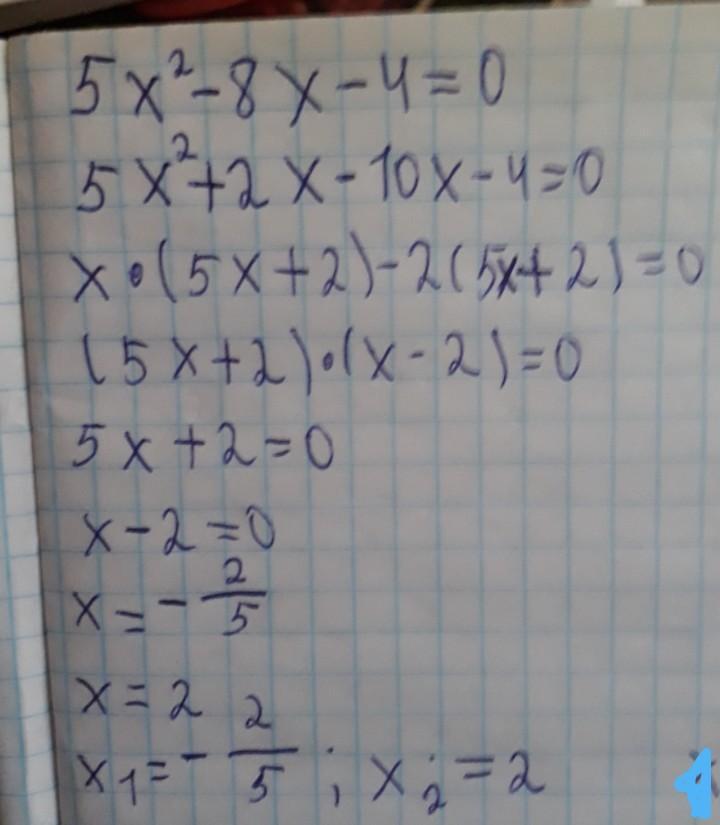 5x²-8x-4=0
5x²+2x-10x-4=0
x•(5x+2)-2(5x+2)=0
(5x+2)•(x-2)=0
5x+2=0
x-2=0
x=-2/5
x=2
x₁=-2/5; x₂=2